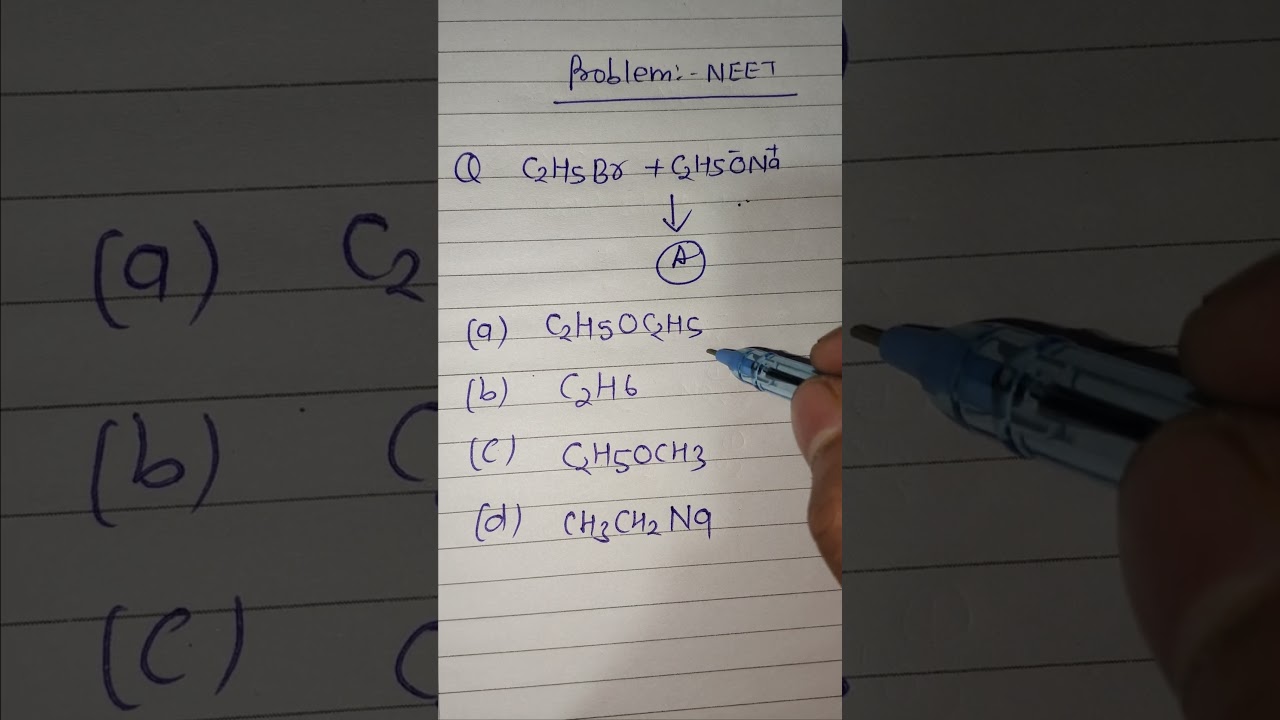 Problem:- NEET
Q C2H5Br + C2H5O⁻Na⁺
↓
A
(a) C2H5OC2H5
(b) C2H6
(c) C2H5OCH3
(d) CH3CH2Na
(a) C2
(b) C
(c) C